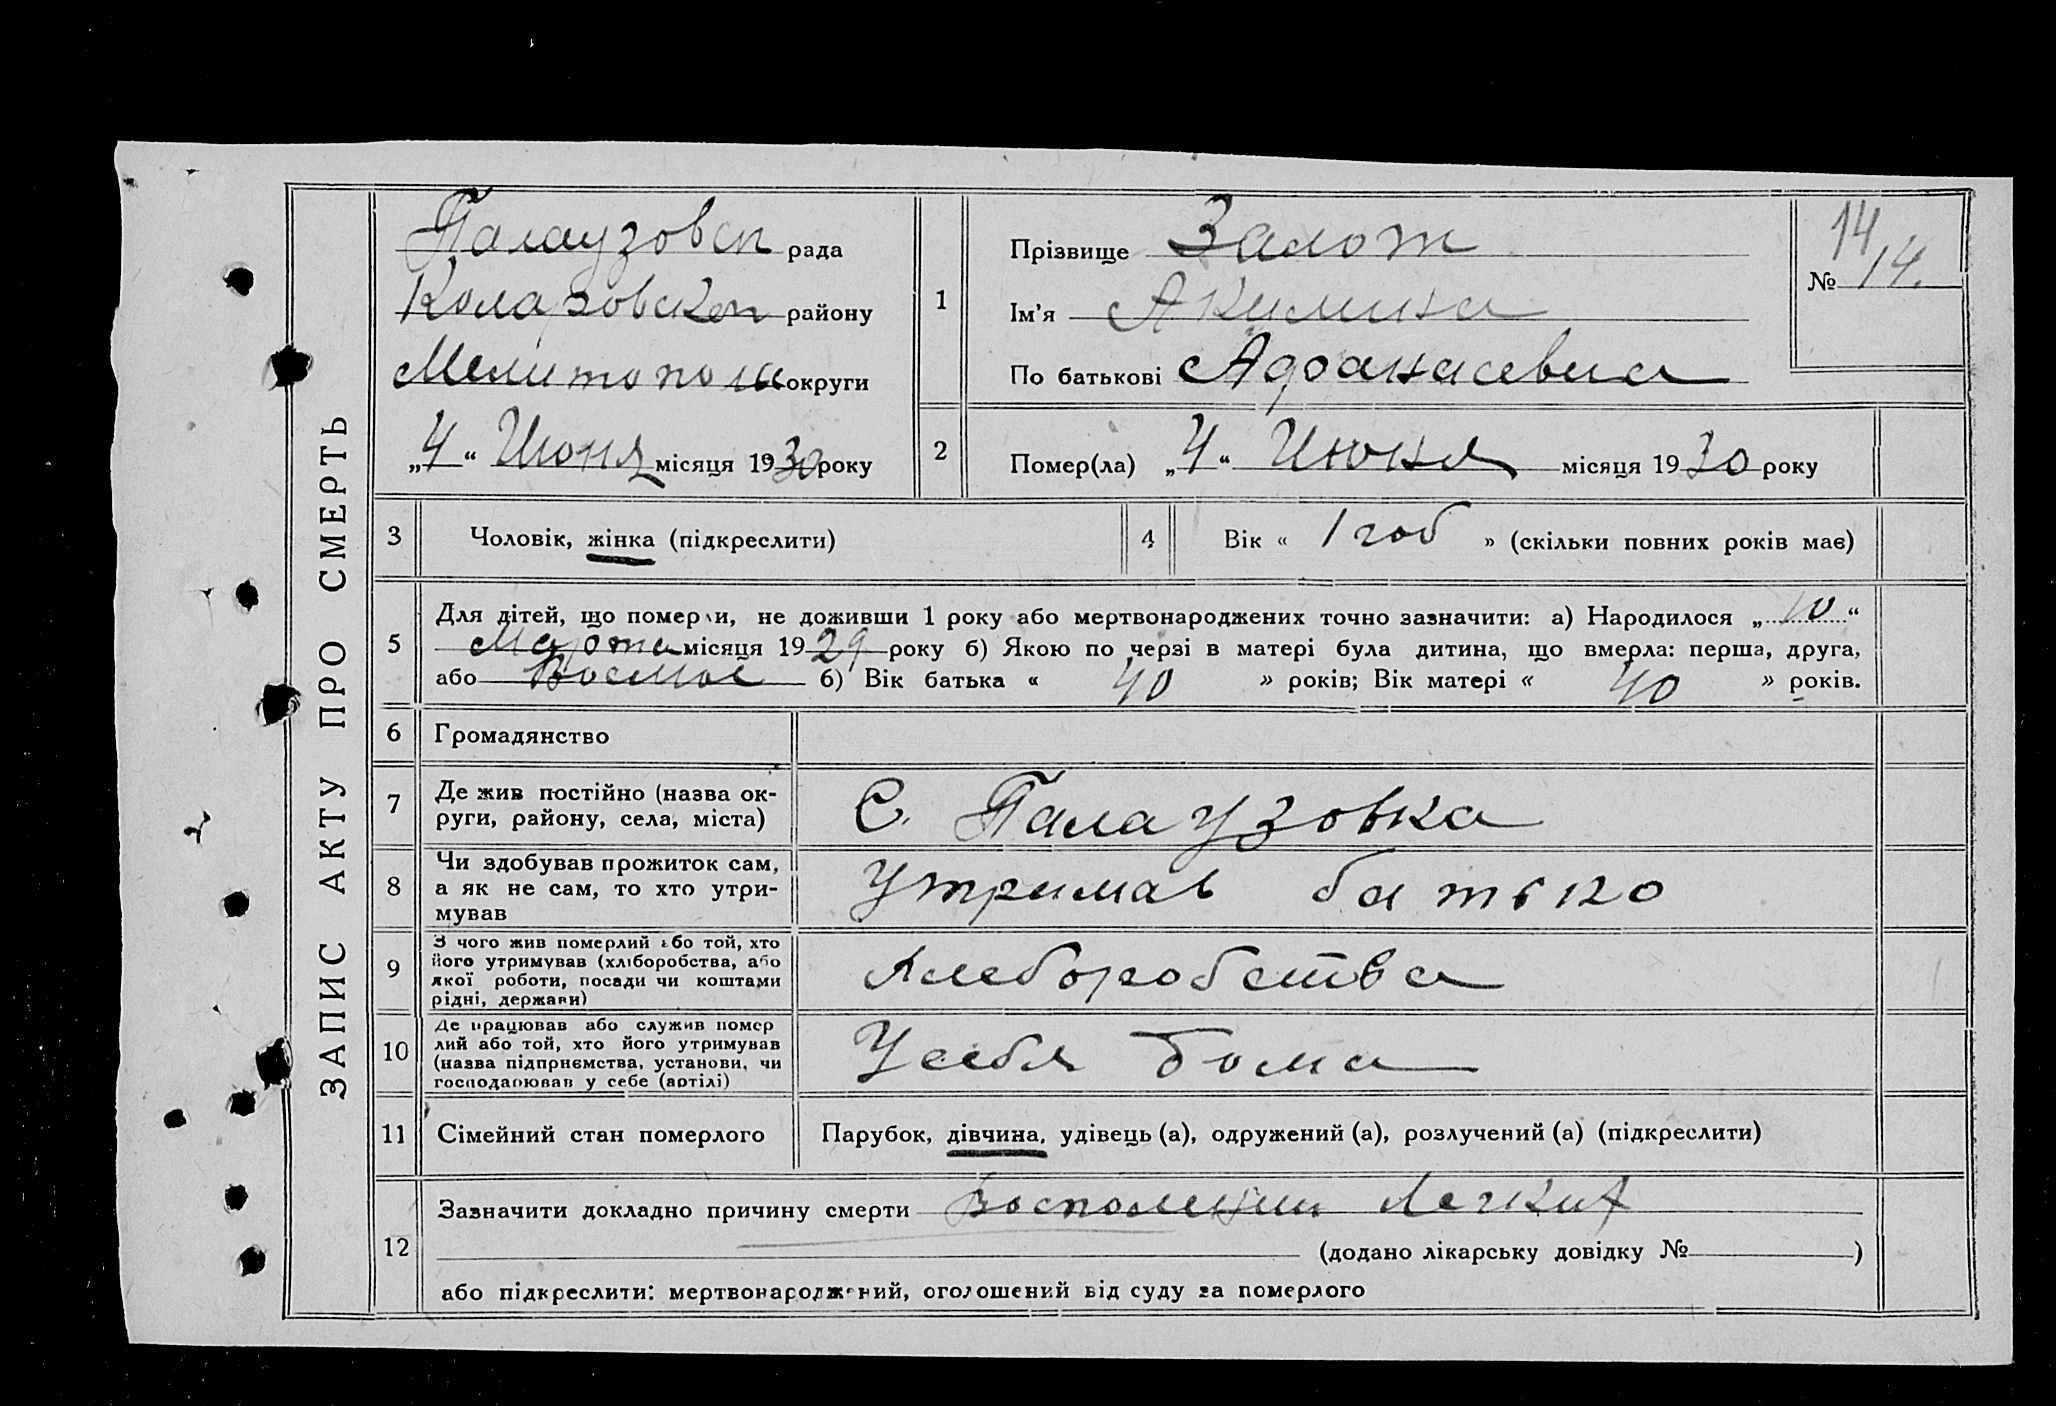 ЗАПИС АКТУ ПРО СМЕРТЬ
Палаузовск рада
Коларовском району
Мелитополь округи
„4“ Июня місяця 1930 року
1
Прізвище Залот
Ім'я Акилина
По батькові Афанасевна
14
№ 14.
2
Помер(ла) „4“ Июня місяця 1930 року
3
Чоловік, жінка (підкреслити)
4
Вік « 1 год » (скільки повних років має)
5
Для дітей, що померли, не доживши 1 року або мертвонароджених точно зазначити: а) Народилося „10“
Марта місяця 1929 року б) Якою по черзі в матері була дитина, що вмерла: перша, друга,
або б) Вік батька « 40 » років; Вік матері « 40 » років.
6
Громадянство
7
Де жив постійно (назва ок-
руги, району, села, міста)
С. Палаузовка
8
Чи здобував прожиток сам,
а як не сам, то хто утри-
мував
Утримав батько
9
З чого жив померлий або той, хто
його утримував (хліборобства, або
якої роботи, посади чи коштами
рідні, держави)
Хлеборобства
10
Де працював або служив помер
лий або той, хто його утримував
(назва підприємства, установи, чи
господарював у себе (артілі)
У себя дома
11
Сімейний стан померлого
Парубок, дівчина, удівець (а), одружений (а), розлучений (а) (підкреслити)
12
Зазначити докладно причину смерти Легких
(додано лікарську довідку № )
або підкреслити: мертвонароджений, оголошений від суду за померлого